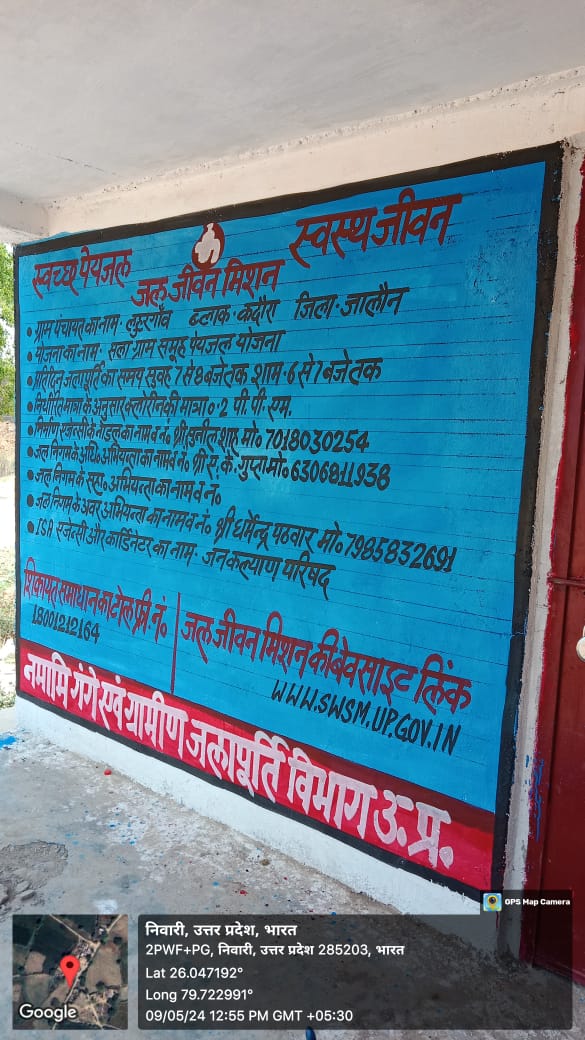 स्वच्छ पेयजल
स्वस्थ जीवन
जल जीवन मिशन
• ग्राम पंचायत का नाम - लुहरगाँव ब्लाक - कदौरा जिला - जालौन
• योजना का नाम - सला ग्राम समूह पेयजल योजना
• प्रतिदिन जलापूर्ति का समय सुवह 7 से 8 बजे तक शाम - 6 से 7 बजे तक
• निर्धारित मात्रा के अनुसार क्लोरीन की मात्रा 0.2 पी. पी. एम.
• निर्माण एजेन्सी के नोडल का नाम व नं० श्री सुनील शाहू मो० 7018030254
• जल निगम के अधि० अभियन्ता का नाम व नं० श्री एस. के. गुप्ता मो० 6306811938
• जल निगम के सहा० अभियन्ता का नाम व नं०
• जल निगम के अवर अभियन्ता का नाम व नं० श्री धर्मेन्द्र पठवार मो० 7985832691
• ISA एजेंसी और कार्डिनेटर का नाम - जनकल्याण परिषद
शिकायत समाधान का टोल फ्री नं०
18001212164
जल जीवन मिशन की बेवसाइट लिंक
WWW.SWSM.UP.GOV.IN
नमामि गंगे एवं ग्रामीण जलापूर्ति विभाग उ. प्र.
GPS Map Camera
निवारी, उत्तर प्रदेश, भारत
2PWF+PG, निवारी, उत्तर प्रदेश 285203, भारत
Lat 26.047192°
Long 79.722991°
09/05/24 12:55 PM GMT +05:30
Google